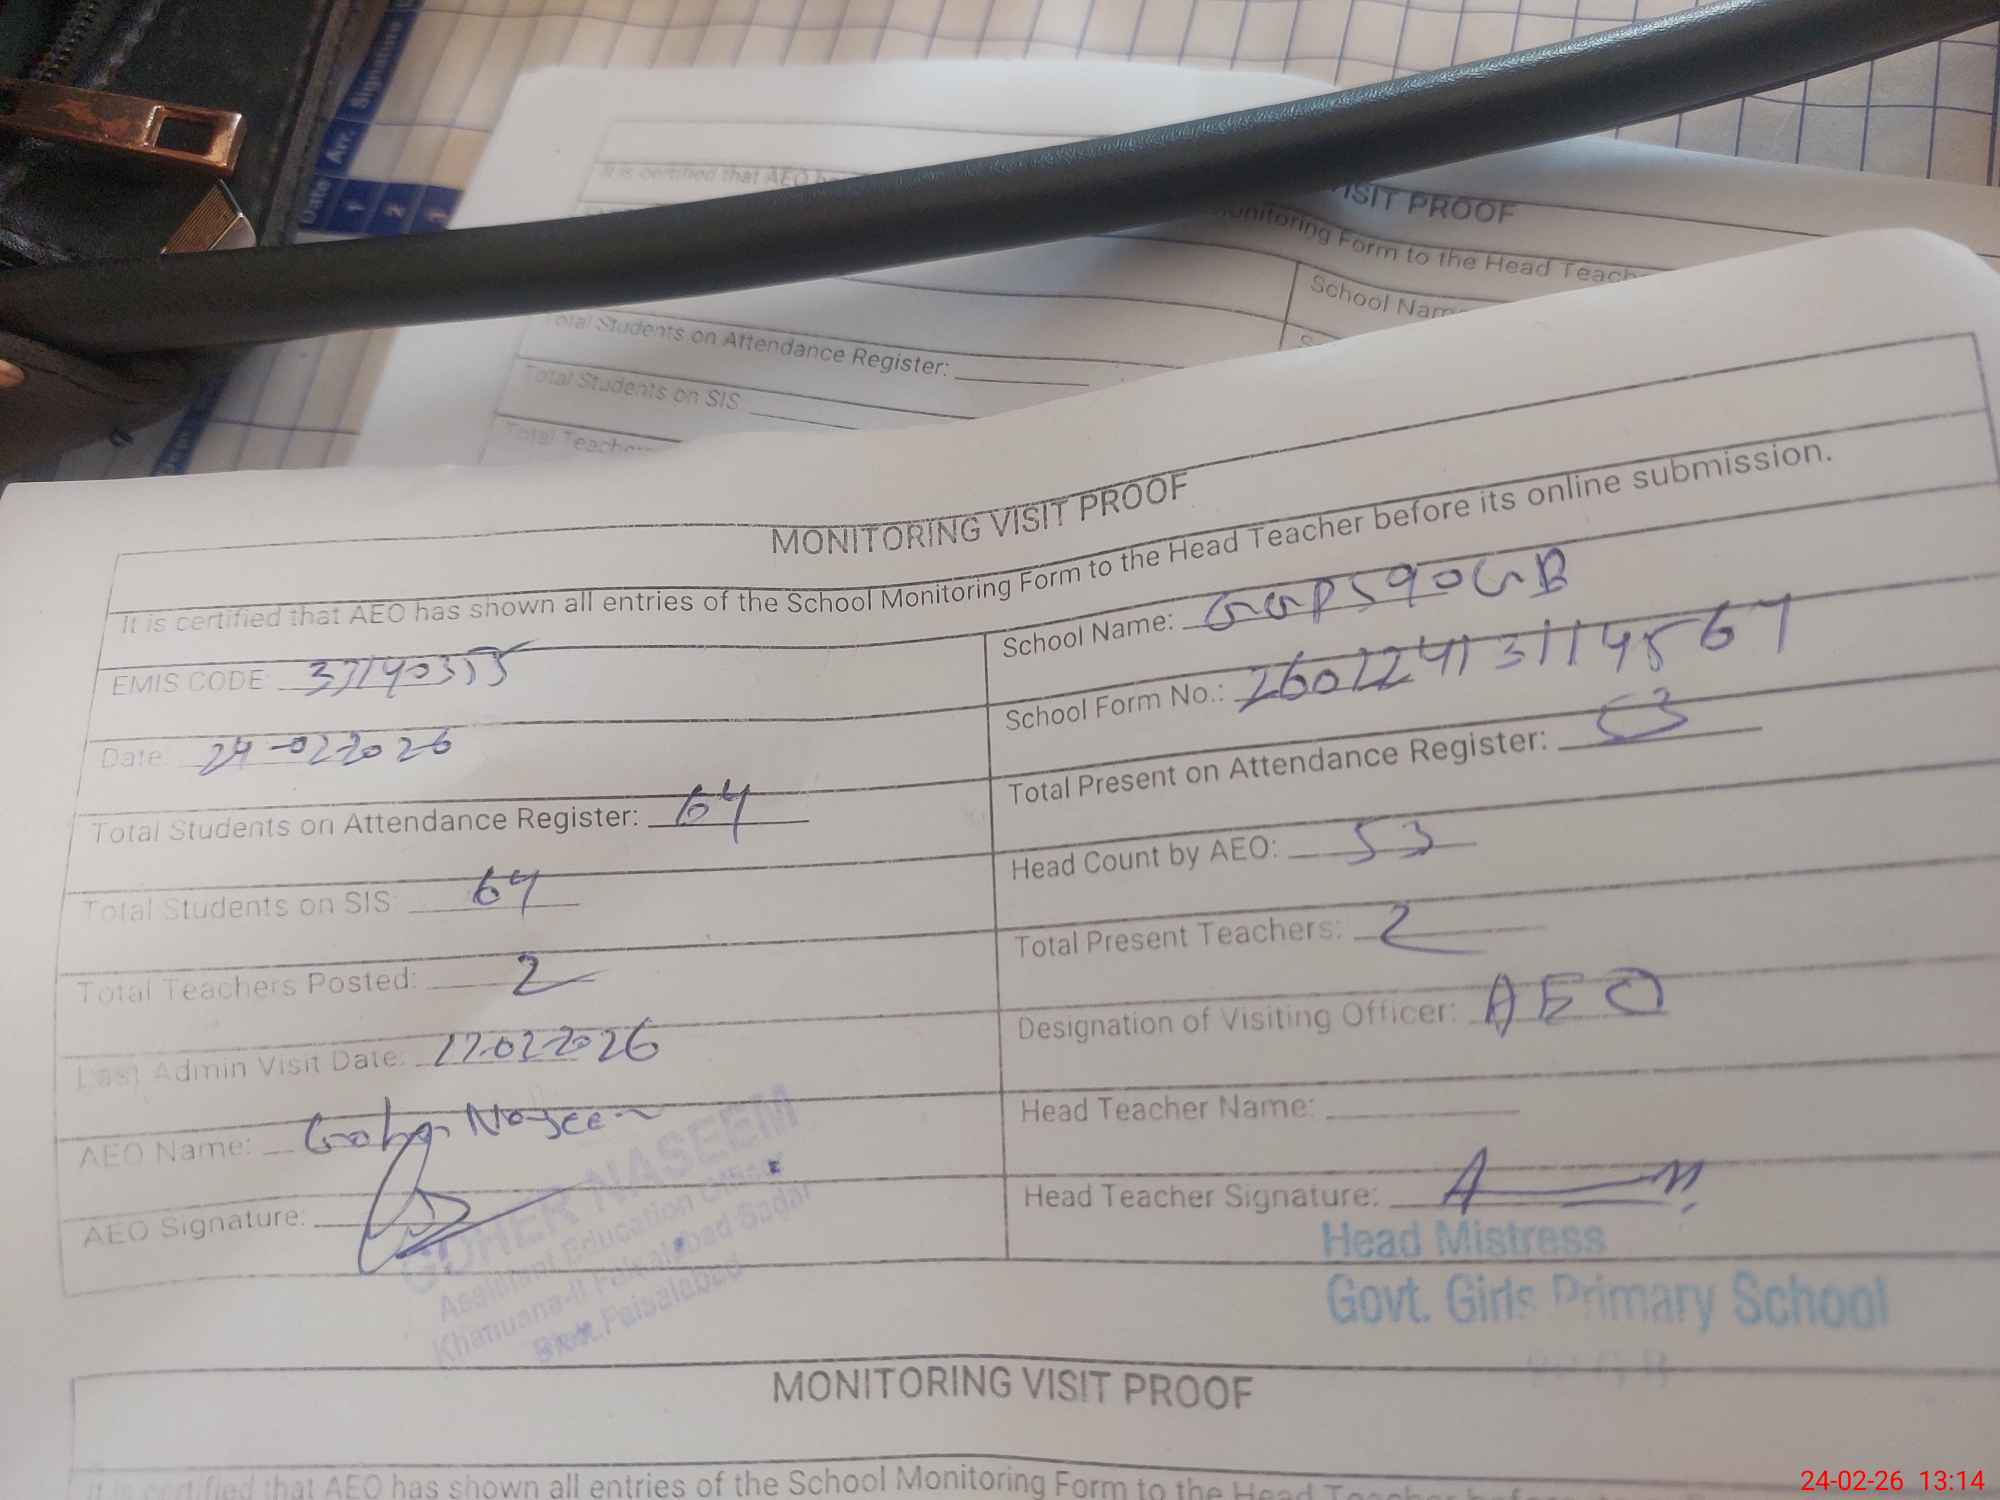 Date Arr. Signature
1
2
3
It is certified that AEO
VISIT PROOF
Monitoring Form to the Head Teach
School Nam
Total Students on Attendance Register:
Total Students on SIS
Total Teacher
MONITORING VISIT PROOF
It is certified that AEO has shown all entries of the School Monitoring Form to the Head Teacher before its online submission.
EMIS CODE School Name: GGPS 90 GB
Date: 24-02-2026 School Form No.:
Total Students on Attendance Register: 64 Total Present on Attendance Register: 53
Total Students on SIS 64 Head Count by AEO: 53
Total Teachers Posted: 2 Total Present Teachers: 2
Last Admin Visit Date: Designation of Visiting Officer: AEO
AEO Name: Goher Naseem Head Teacher Name:
AEO Signature: Head Teacher Signature:
GOHER NASEEM
Assistant Education Officer
Khanuana-II Faisalabad Sadar
Faisalabad
Head Mistress
Govt. Girls Primary School
MONITORING VISIT PROOF
It is certified that AEO has shown all entries of the School Monitoring Form to the Head Teacher before
24-02-26 13:14